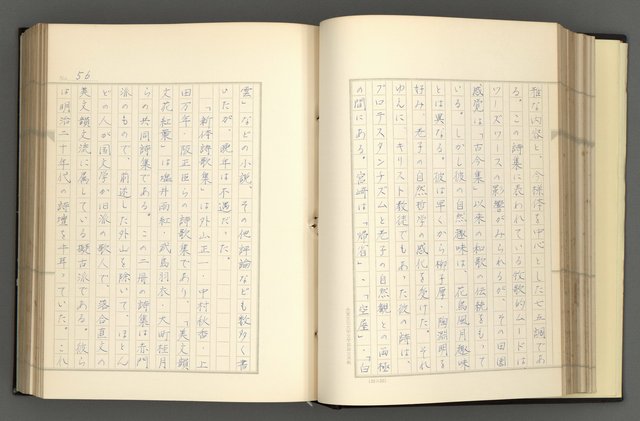 雅な内容と、今様体を中心とした七五調であ
る。この詩集に表われている牧歌的ムードは、
ワーズワースの影響がみられるが、その田園
感覚は「古今集」以来の和歌の伝統をもって
いる。しかし彼の自然趣味は、花鳥風月趣味
とは異なる。彼は早くから柳子厚・陶淵明を
好み、老子の自然哲学の感化を受けた。それ
ゆえに、キリスト教徒でもあった彼の詩は、
プロテスタンチズムと老子の自然観との両極
の間にある。宮崎は「帰省」、「空屋」、「白
56
雲」などの小説、その他評論なども数多く書
いたが、晩年は不遇だった。
「新体詩歌集」は外山正一・中村秋香・上
田万年・阪正臣らの詩歌集であり、「美文韻
文花紅葉」は塩井雨紅・武島羽衣・大町桂月
らの共同詩集である。この二冊の詩集は赤門
派のもので、前述した外山を除いて、ほとん
どの人が国文学か旧派の歌人で、落合直文の
美文韻文流に属している擬古派である。彼ら
は明治二十年代の詩壇を牛耳っていた。これ
(20×20)